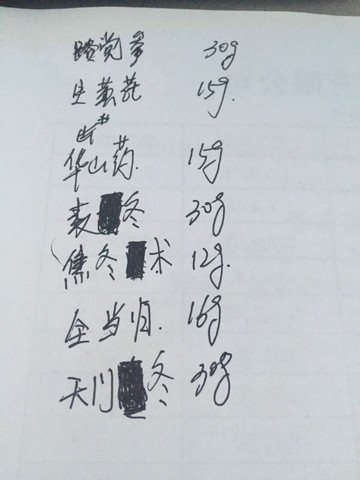 潞党参 30g
生黄芪 15g.
山
华山药. 15g
麦冬 30g
焦冬术 12g.
全当归. 16g
天门冬 30g